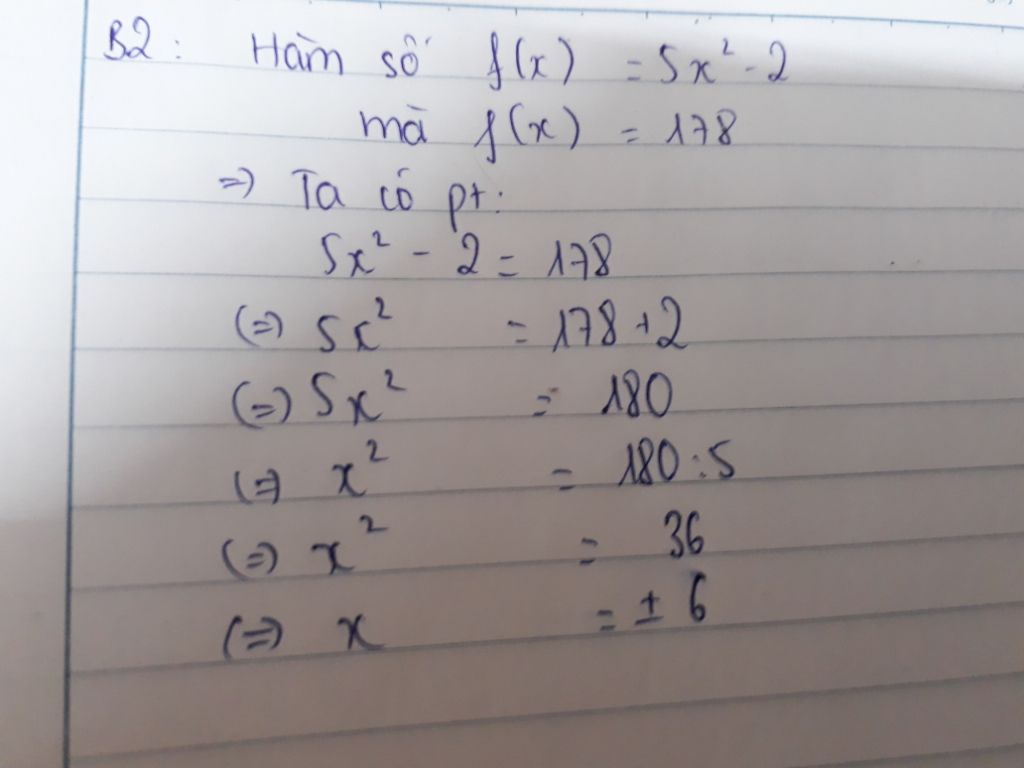 B2: Hàm số f(x) = 5x² - 2
mà f(x) = 178
=> Ta có pt:
5x² - 2 = 178
(=) 5x² = 178 + 2
(=) 5x² = 180
(=) x² = 180 : 5
(=) x² = 36
(=) x = ± 6